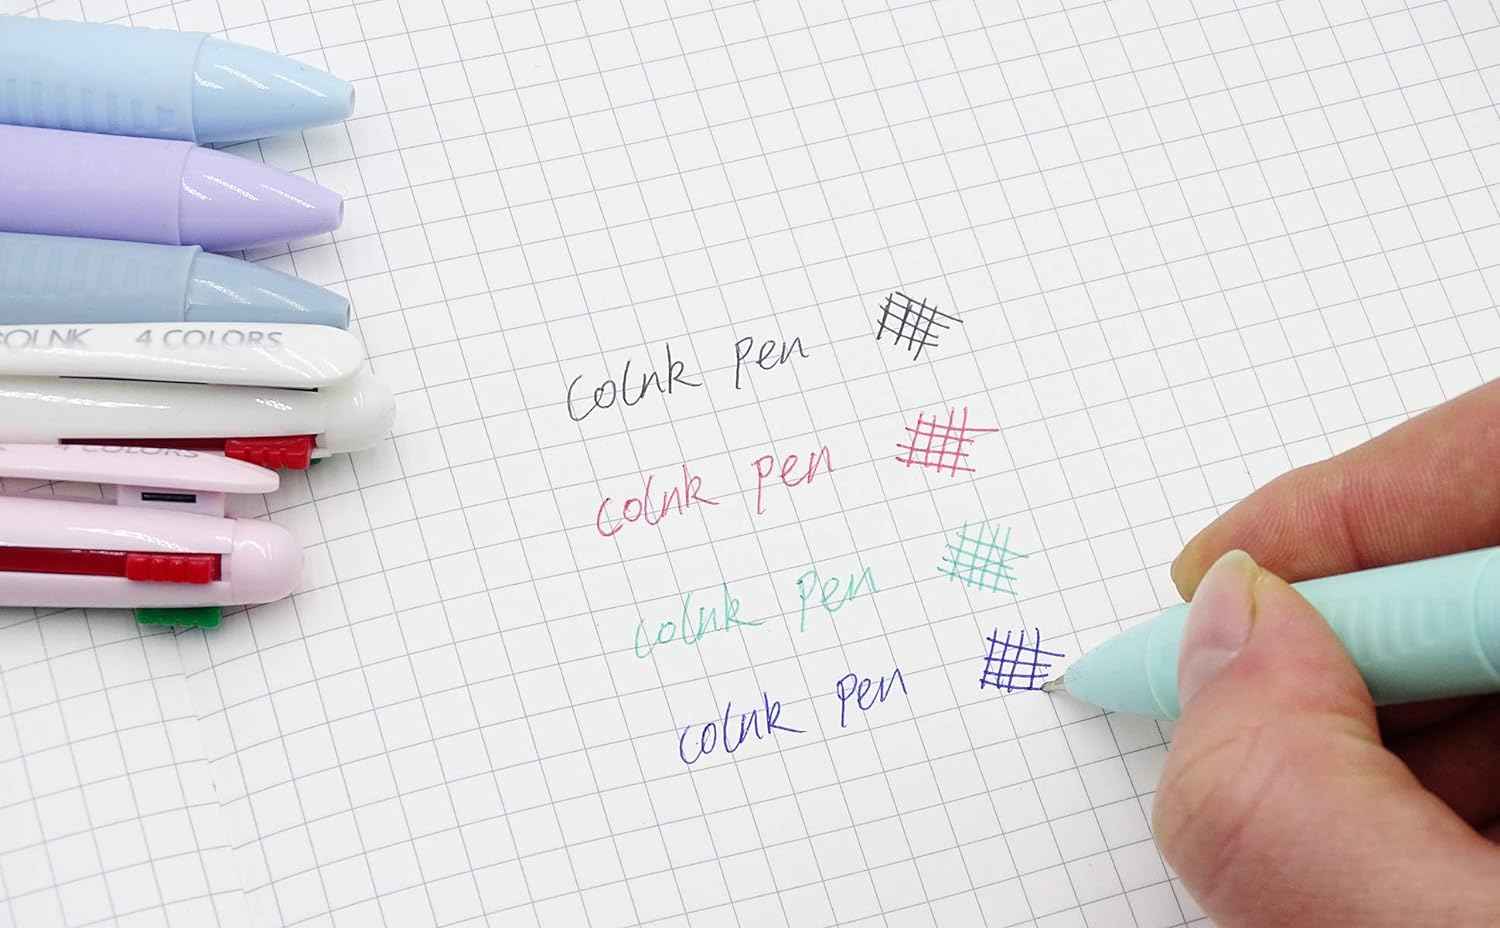 COLNK 4 COLORS
4 COLORS
colnk pen
colnk pen
colnk pen
colnk pen